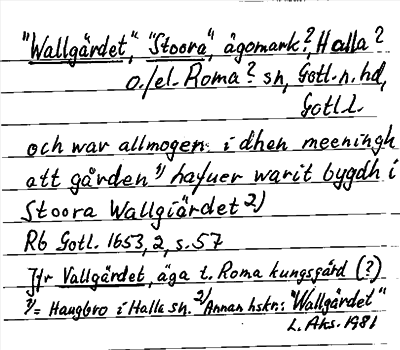 "Wallgärdet", "Stoora", ägomark?, Halla?
o./el. Roma? sn, Gotl. n. hd,
Gotl. L.
och war allmogen i dhen meeningh
att gården 1) hafuer warit bygdh i
Stoora Wallgiärdet 2)
Rb Gotl. 1653, 2, s. 57
Jfr Vallgärdet, äga t. Roma kungsgård (?)
1) = Haugbro i Halla sn. 2) Annan hskr.: "Wallgärdet"
L. Aks. 1981